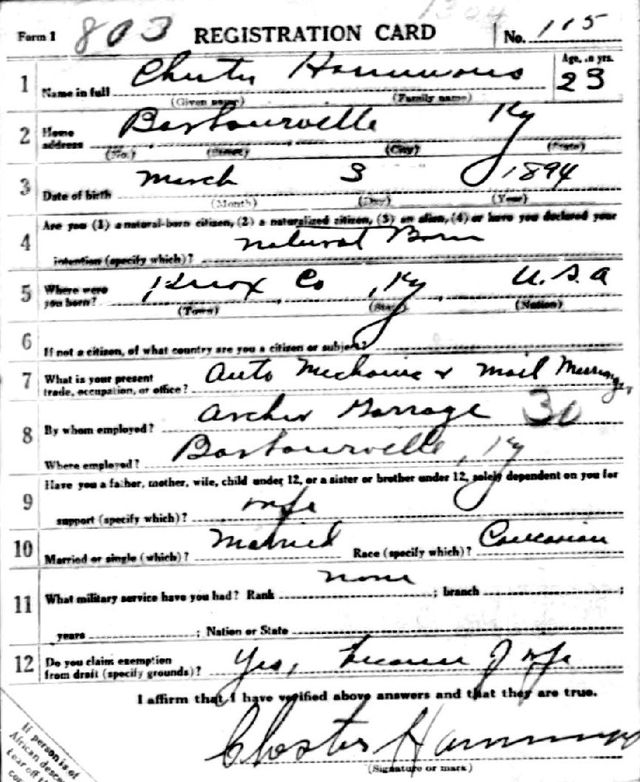 Form 1 803 REGISTRATION CARD No. 115
1 Name in full Chester Hammons Age, in yrs. 23
(Given name) (Family name)
2 Home address Barbourville Ky
(No.) (Street) (City) (State)
3 Date of birth March 3 1894
(Month) (Day) (Year)
4 Are you (1) a natural-born citizen, (2) a naturalized citizen, (3) an alien, (4) or have you declared your
intention (specify which)? natural Born
5 Where were you born? Knox Co , Ky , U.S.A
(Town) (State) (Nation)
6 If not a citizen, of what country are you a citizen or subject?
7 What is your present trade, occupation, or office? Auto Mechanic & Mail
8 By whom employed? Archer Garrage 30
Where employed? Barbourville, Ky
9 Have you a father, mother, wife, child under 12, or a sister or brother under 12, solely dependent on you for
support (specify which)? wife
10 Married or single (which)? Married Race (specify which)? Caucasian
11 What military service have you had? Rank none ; branch ;
years ; Nation or State
12 Do you claim exemption from draft (specify grounds)? Yes, because of wife
I affirm that I have verified above answers and that they are true.
Chester Hammons
(Signature or mark)
If person is of
African
tear off